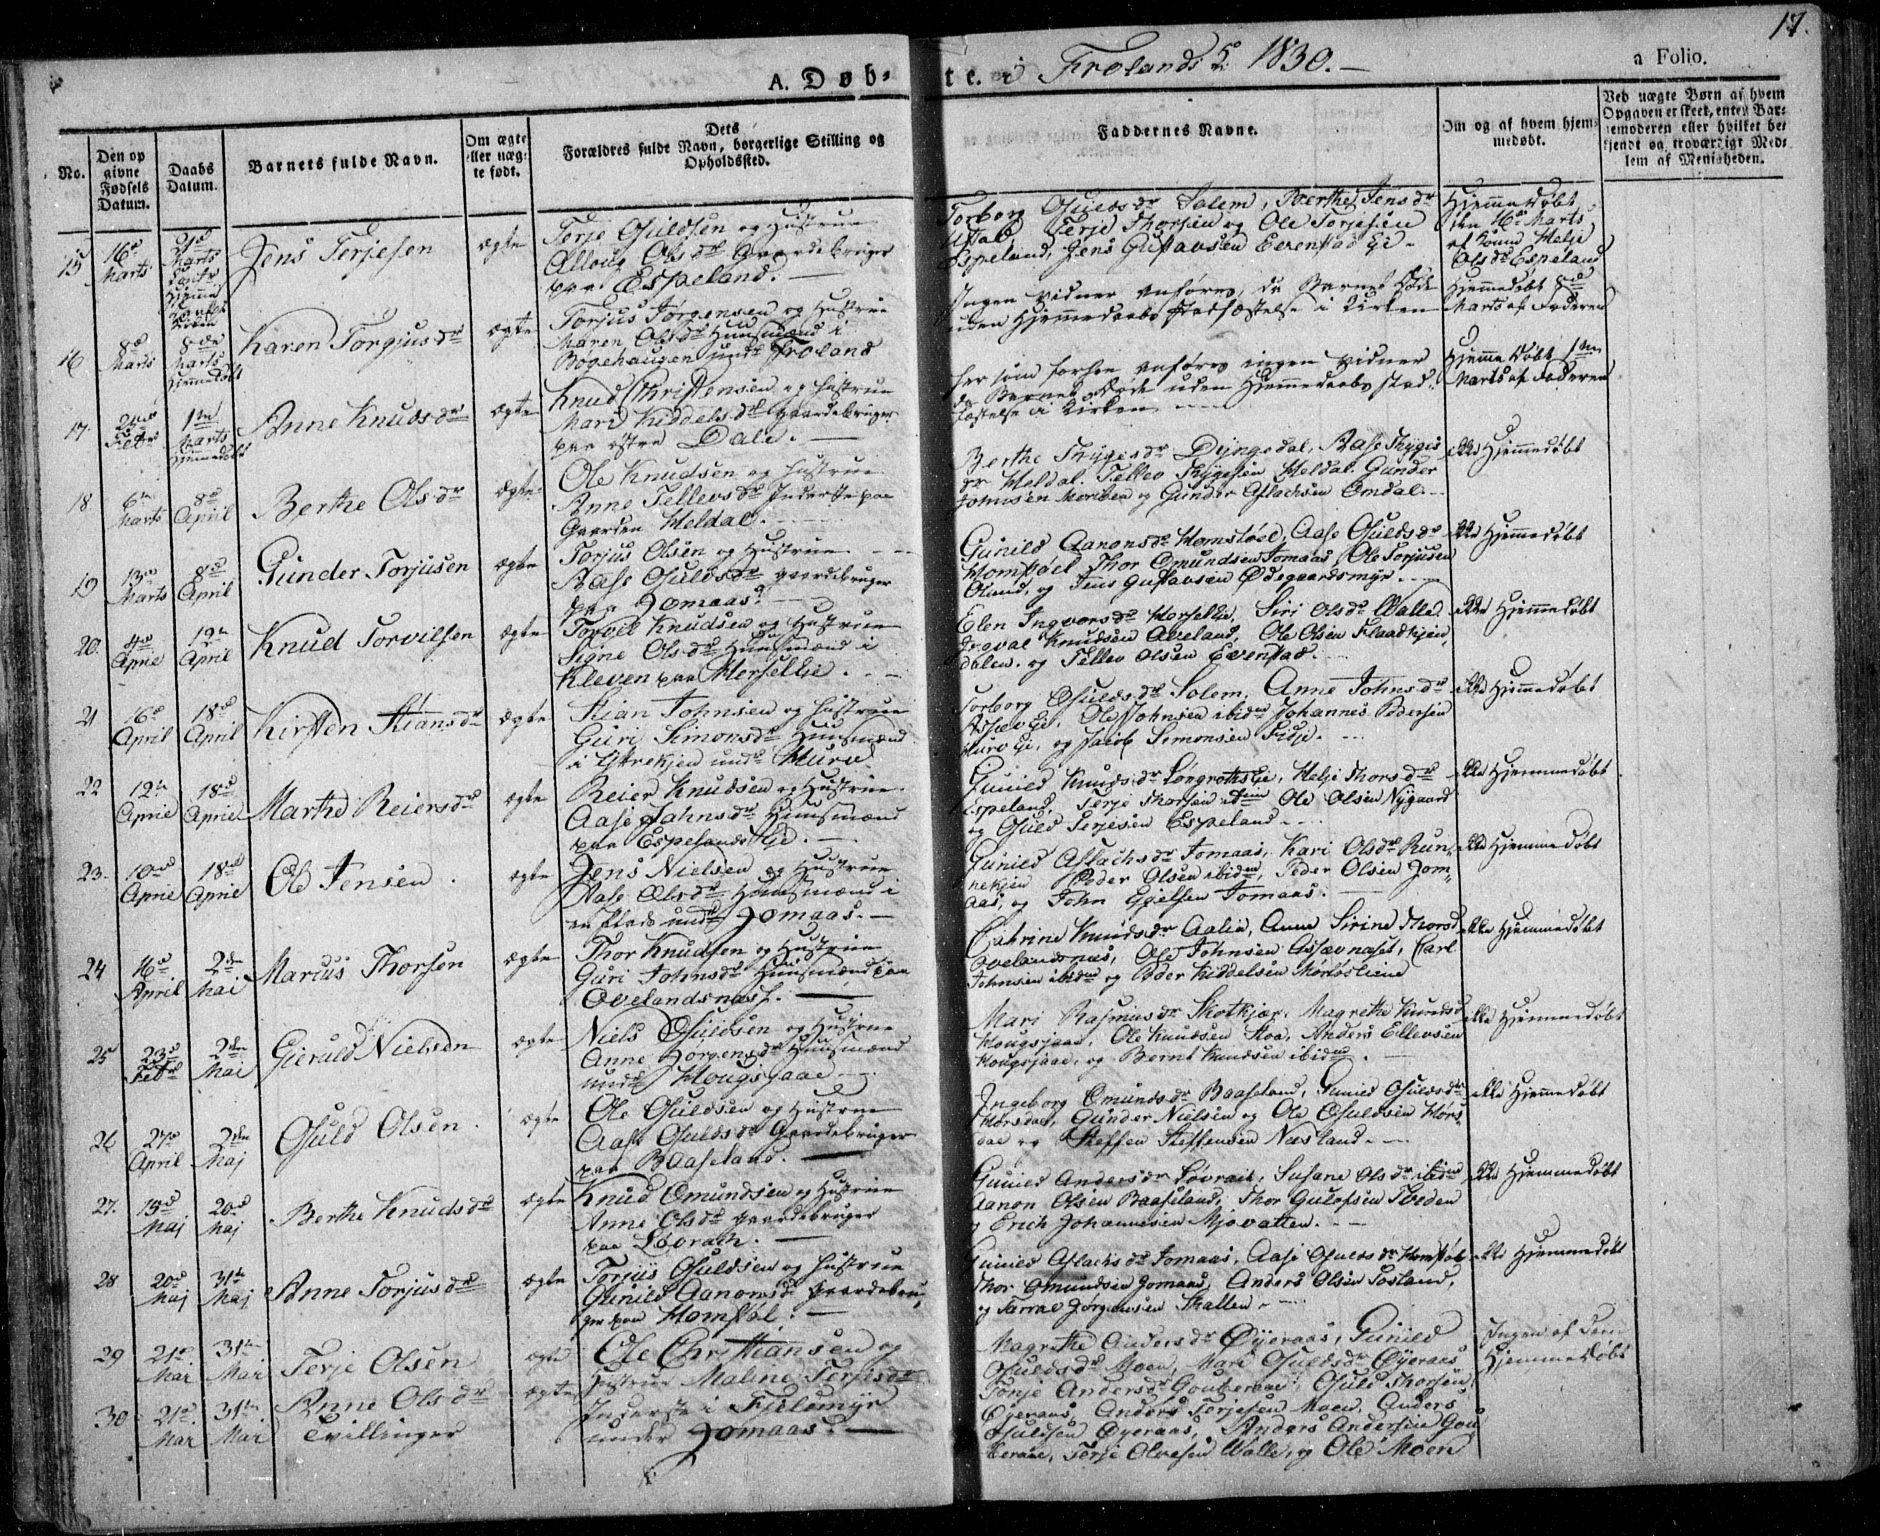 17.
A. Døb-
te. i Frolands S. 1830.—
a Folio.
No.
Den op
givne
Fødsels
Datum.
Daabs
Datum.
Barnets fulde Navn.
Om ægte
eller uæg-
te født.
Dets
Forældres fulde Navn, borgerlige Stilling og
Opholdssted.
Faddernes Navne.
Om og af hvem hjem-
medøbt.
Ved uægte Børn af hvem
Opgaven er skeet, enten Bar-
nemoderen eller hvilket be
kjendt og troværdigt Med-
lem af Menigheden.
15
16
Marts
21
Marts
Jens Terjesen
ægte
Terje Osuldsen og Hustrue
Olsdr Gaardebruger
paa Espeland.
Torborg Osuldsdr Solem, Berthe Jensdr
Terje Thorsen og Ole Terjesen
Espeland, Jens Gustavsen Evenstad Ei
Hjemmedøbt
den 16de Marts
af Helje
Olsdr Espeland
16
8d
Marts
8de
Marts
Hjemmedøbt
Karen Torgjusdr
ægte
Torjus Jørgensen og Hustrue
Maren Olsdr Huusmænd i
Bøgehaugen undr Froland
Ingen vidner anføres, da Barnet døde
uden Hjemmedaabs stadfæstelse i Kirken
Hjemmedøbt 8d
Marts af Faderen
17.
Febr
1te
Marts
Hjemmedøbt
Anne Knudsdr
ægte
Knud Christensen og Hustrue
Mari Kiddelsdr gaardebruger
paa østre Dale.
Her som forhen anføres ingen vidner
da Barnet døde uden Hjemmedaabs stad-
fæstelse i Kirken
Hjemmedøbt 1te
Marts af Faderen
18
6te
Marts
8d
April
Berthe Olsdr
ægte
Ole Knudsen og Hustrue
Anne Tellevsdr Inderste paa
Gaarden Heldal.
Berthe Thygesdr Dyngedal, Aase Thyges
dr Heldal, Tellev Thygesen Heldal, Gunder
Johnsen Moriben og Gunder Aslachsen Omdal.
ikke Hjemmedøbt
19
13d
Marts
8d
April
Gunder Torjusen
ægte
Torjus Olsen og Hustrue
Aase Osuldsdr gaardebruger
paa Jomaas.
Gunild Aanonsdr Homstøel, Aase Osuldsdr
Homstøel, Thor Omundsen Jomaas, Ole Torjusen
og Jens Gustavsen Ødegaardsmyr.
ikke Hjemmedøbt
20.
4d
April
12te
April
Knud Torvilsen
ægte
Torvil Knudsen og Hustrue
Signe Olsdr Huusmænd i
Kleven paa Herselkje.
Elen Ingvorsdr Herselkje, Siri Olsdr Walle,
Ingval Knudsen Aveland, Ole Olsen Flaadkjen
dalen, og Tellev Olsen Evenstad.
ikke Hjemmedøbt
21
16d
April
18d
April
Kirsten Stiansdr
ægte
Stian Johnsen og Hustrue
Guri Simonsdr Huusmænd
i Ytrekjen undr Hurv.
Torborg Osuldsdr Solem, Anne Johnsdr
Ei, Ole Johnsen ibidm Johannes Pedersen
Hurv Ei, og Jacob Simonsen Fidje.
ikke Hjemmedøbt
22
12te
April
18d
April
Marthe Reiersdr
ægte
Reier Knudsen og Hustrue
Aase Johnsdr Huusmænd
paa Espelands Ei.
Gunild Knudsdr Ei, Helje Thorsdr
Espeland, Terje Thorsen Ole Olsen Nygaard
og Osuld Terjesen Espeland.
ikke Hjemmedøbt
23.
10d
April
18d
April
Ole Jensen
ægte
Jens Nielsen og Hustrue
Aase Olsdr Huusmænd i
en Plads undr Jomaas.
Gunild Aslachsdr Jomaas, Kari Olsdr Run-
nekjen Peder Olsen ibidm, Peder Olsen Jom-
aas, og John Egelsen Jomaas.
ikke Hjemmedøbt
24
16d
April
2den
Mai
Marcus Thorsen
ægte
Thor Knudsen og Hustrue
Guri Johnsdr Huusmænd paa
Ovelandsnæss.
Cathrine Knudsdr Aalia, Anne Sirine Thorsd
Ovelandsnæs, Ole Johnsen Assævnaset, Carl
Johnsen ibidm og Peder Kiddelsen
ikke Hjemmedøbt
25
23d
Febr
2den
Mai
Gieruld Nielsen
ægte
Niels Osuldsen og Hustrue
Anne Jørgensdr Huusmænd
undr Hougsjaae
Mari Rasmusdr Skotkjær, Magrethe Knudsd
Hougsjaae, Ole Knudsen Stoa, Anders Ellevsen
Hougsjaae, og Bernt Knudsen ibidm
ikke Hjemmedøbt
26
27d
April
2den
Maj
Osuld Olsen
ægte
Ole Osuldsen og Hustrue
Aase Osuldsdr Gaardebruger
paa Baaseland.
Ingeborg Omundsdr Baaseland, Gunild Osuldsdr
Horsdal, Gunder Nielsen og Ole Osuldsen Hørs-
dal og Steffen Steffensen Næsland.
ikke Hjemmedøbt
27.
13d
Maj
20d
Maj
Berthe Knudsdr
ægte
Knud Omundsen og Hustrue
Anne Olsdr gaardebruger
paa Løvrach.
Gunild Andersdr Løvrait, Susane Olsdr ibidm
Aanon Olsen Baaseland, Thor Gulofsen Tveden
og Erich Johannesen Mjøvatten.
ikke Hjemmedøbt
28
20d
Maj
31te
Maj
Anne Torjusdr
ægte
Torjus Osuldsen og Hustrue
Gunild Aanonsdr gaardebru-
ger paa Homstøl.
Gunild Aslachsdr Jomaas, Aase Osuldsdr Homstøl
Thor Omundsen Jomaas, Anders Olsen Sosland,
og Tarral Jørgensen Skallen.
ikke Hjemmedøbt
29
21d
Mai
31te
Mai
Terje Olsen
ægte
Ole Christiansen og
Hustrue Maline Terjesdr
Inderste i Fjeldmyr
under Jomaas.
Magrethe Andersdr Øyeraas, Gunild
Osuldsdr Moen, Mari Osuldsdr Øyeraas
Tonje Andersdr Osuld Thorsen
Øyeraas, Anders Terjesen Moen, Anders
Osuldsen Øyeraas, Anders Andersen Gou
beraas, Terje Olvesen Walle, og Ole Moen
Ingen af dem
Hjemmedøbt
30
21d
Mai
31te
Mai
Anne Olsdr
Tvillinger
ægte